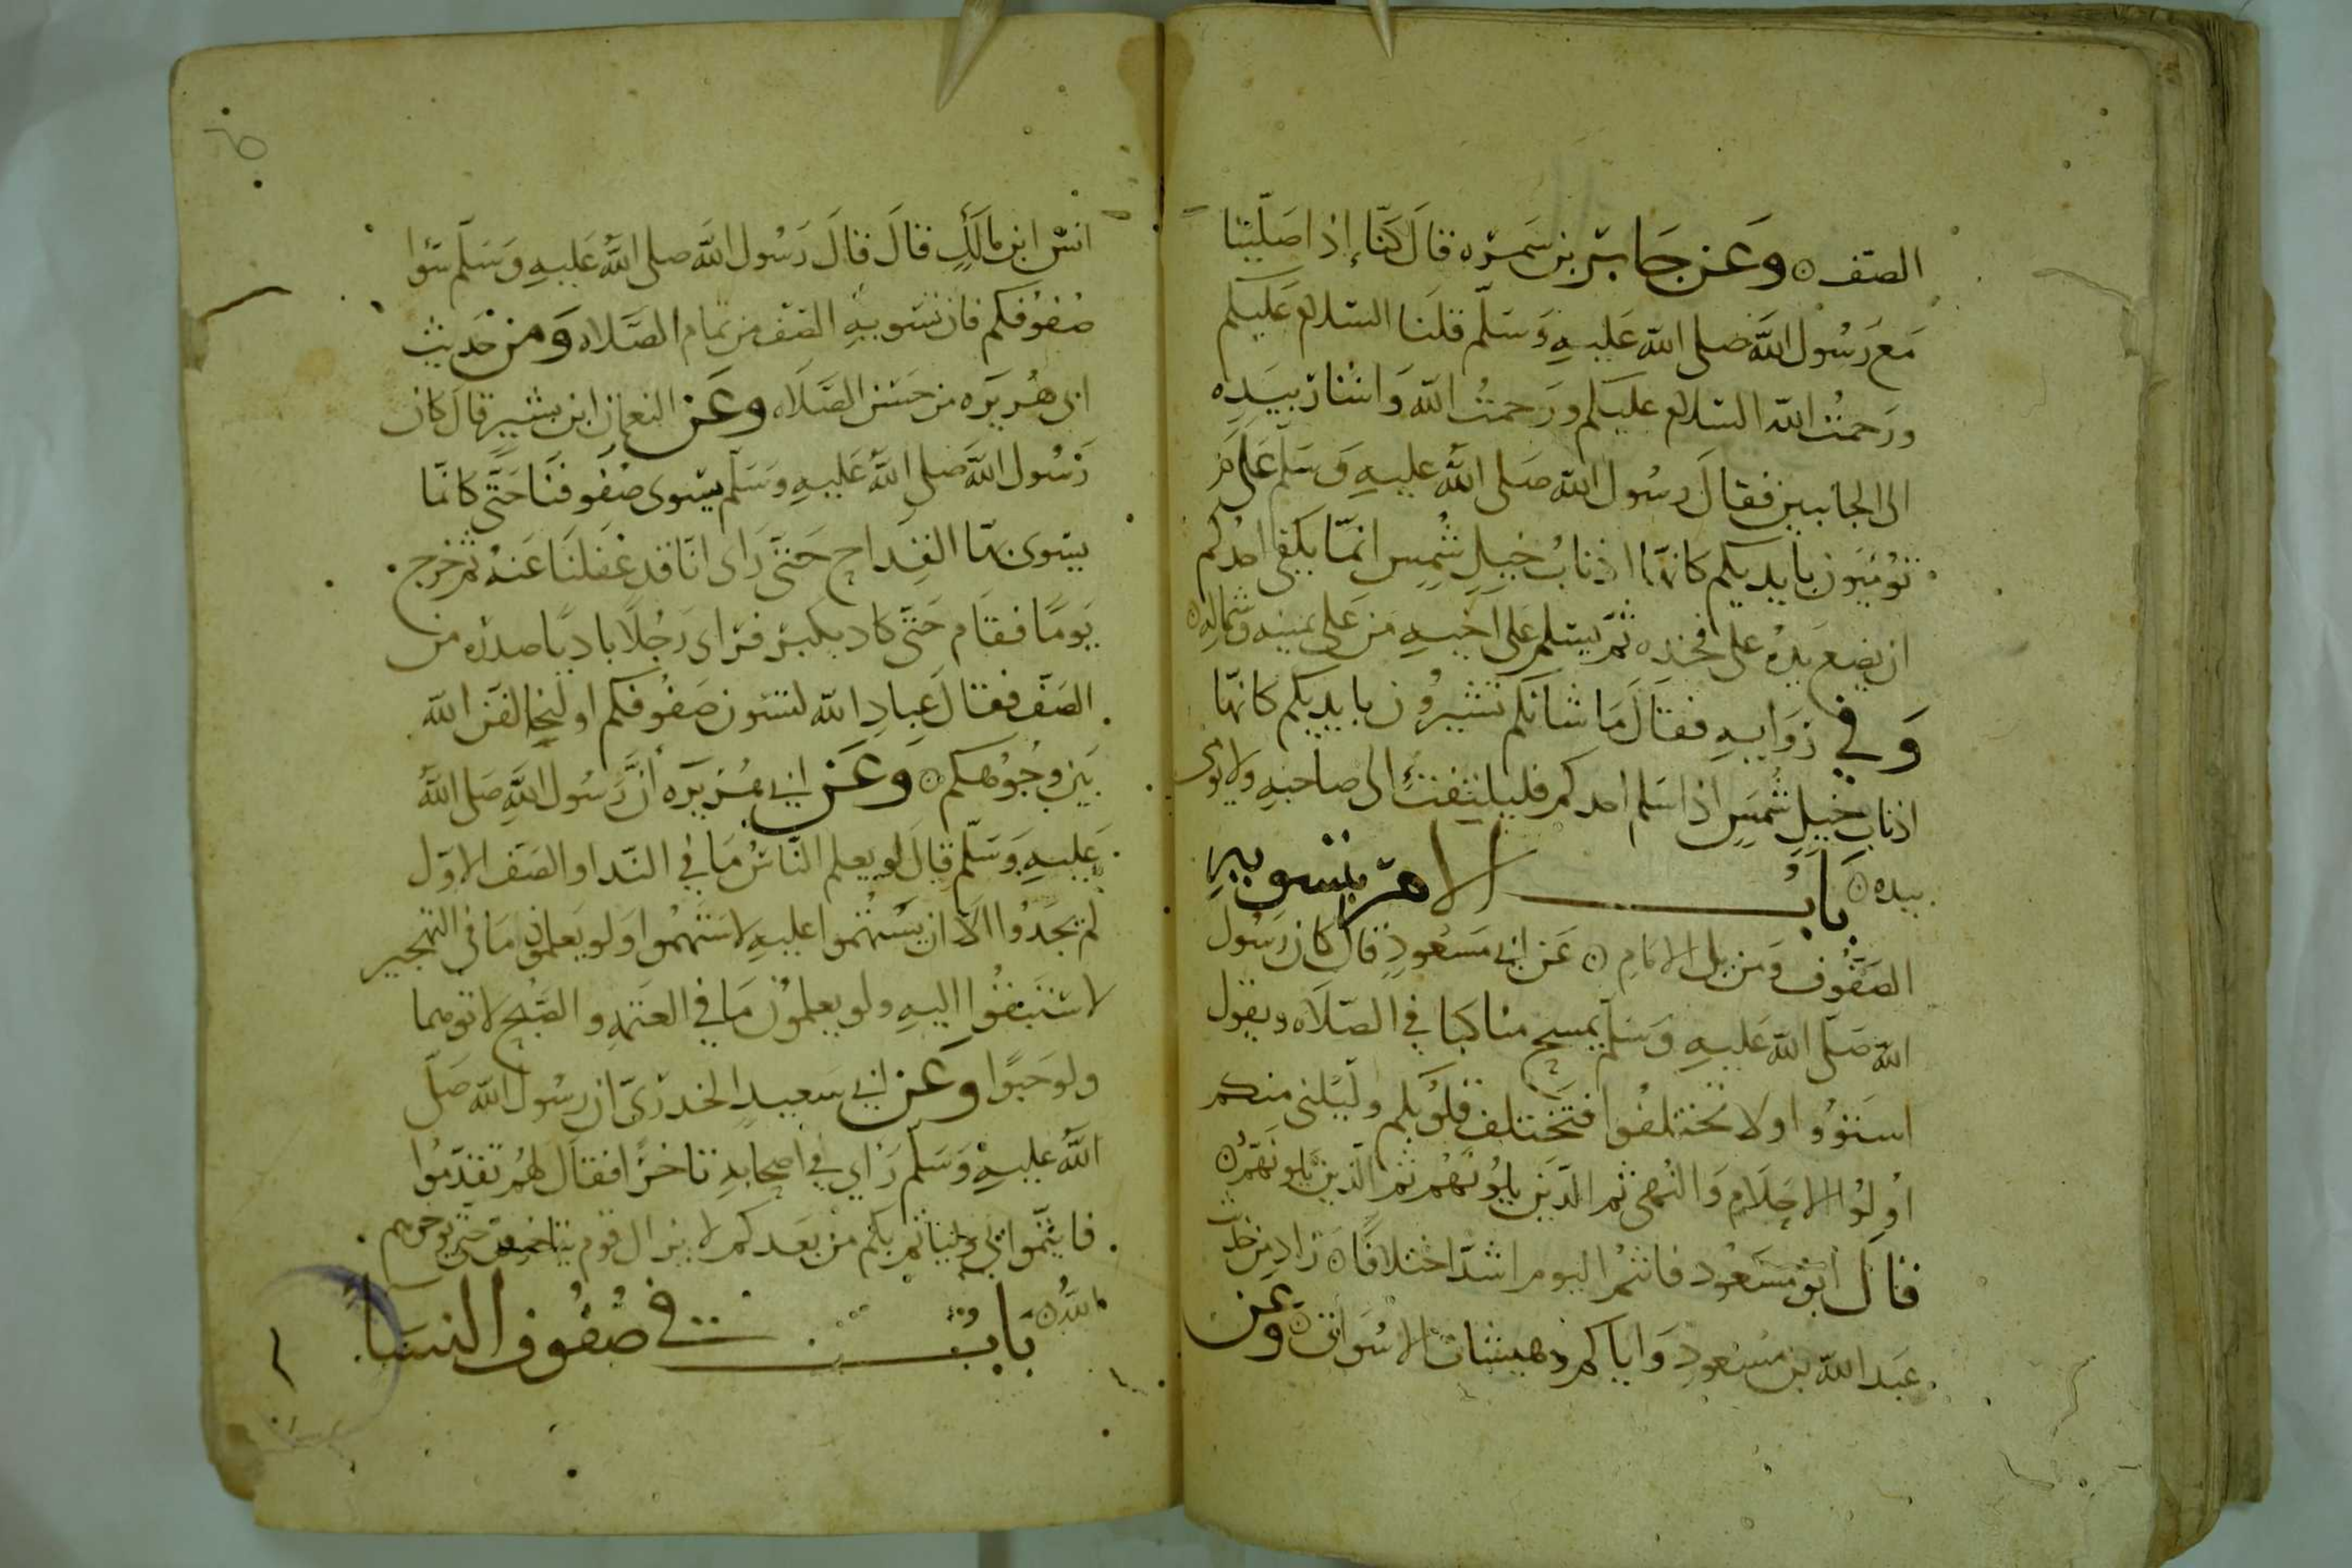 الصف ۞ وعن جابر بن سمره قال كنا إذا صلينا
مع رسول الله صلى الله عليه وسلم قلنا السلام عليكم
ورحمت الله السلام عليكم ورحمت الله واشار بيده
الى الجانبين فقال رسول الله صلى الله عليه وسلم على م
تومئون بايديكم كانها اذناب خيل شمس انما يكفى احدكم
ان يضع يده على فخذه ثم يسلم على اخيه من على يمينه وشماله ۞
وفي روايه فقال ما شانكم تشيرون بايديكم كانها
اذناب خيل شمس اذا سلم احدكم فليلتفت الى صاحبه ولا يومى
بيده ۞ باب الامر بتسويه
الصفوف ومن يلى الامام ۞ عن ابي مسعود قال كان رسول
الله صلى الله عليه وسلم يمسح مناكبنا في الصلاه ويقول
استووا ولا تختلفوا فتختلف قلوبكم وليلنى منكم
اولوا الاحلام والنهى ثم الذين يلونهم ثم الذين يلونهم ۞
قال ابو مسعود فانتم اليوم اشد اختلافا ۞ زاد من حديث
عبد الله بن مسعود واياكم وهيشات الاسواق ۞ وعن
انس ابن مالك قال قال رسول الله صلى الله عليه وسلم سووا
صفوفكم فان تسويه الصف من تمام الصلاه ومن حديث
ابى هريره من حسن الصلاه وعن النعمان ابن بشير قال كان
رسول الله صلى الله عليه وسلم يسوى صفوفنا حتى كانما
يسوى بها القداح حتى راى انا قد غفلنا عنه ثم خرج
يوما فقام حتى كاد يكبر فراى رجلا باديا صدره من
الصف فقال عباد الله لتسون صفوفكم او ليخالفن الله
بين وجوهكم ۞ وعن ابي هريره أن رسول الله صلى الله
عليه وسلم قال لو يعلم الناس ما في الندا والصف الاول
لم يجدوا الا ان يستهموا عليه لاستهموا ولو يعلمون ما في التهجير
لاستبقوا اليه ولو يعلمون ما في العتمه والصبح لاتوهما
ولو حبوا وعن ابي سعيد الخدرى ان رسول الله صلى
الله عليه وسلم راي في اصحابه تاخرا فقال لهم تقدموا
فايتموا بي وليأتم بكم من بعدكم لا يزال قوم يتاخرون حتى يوخرهم
الله ۞ باب في صفوف النسا